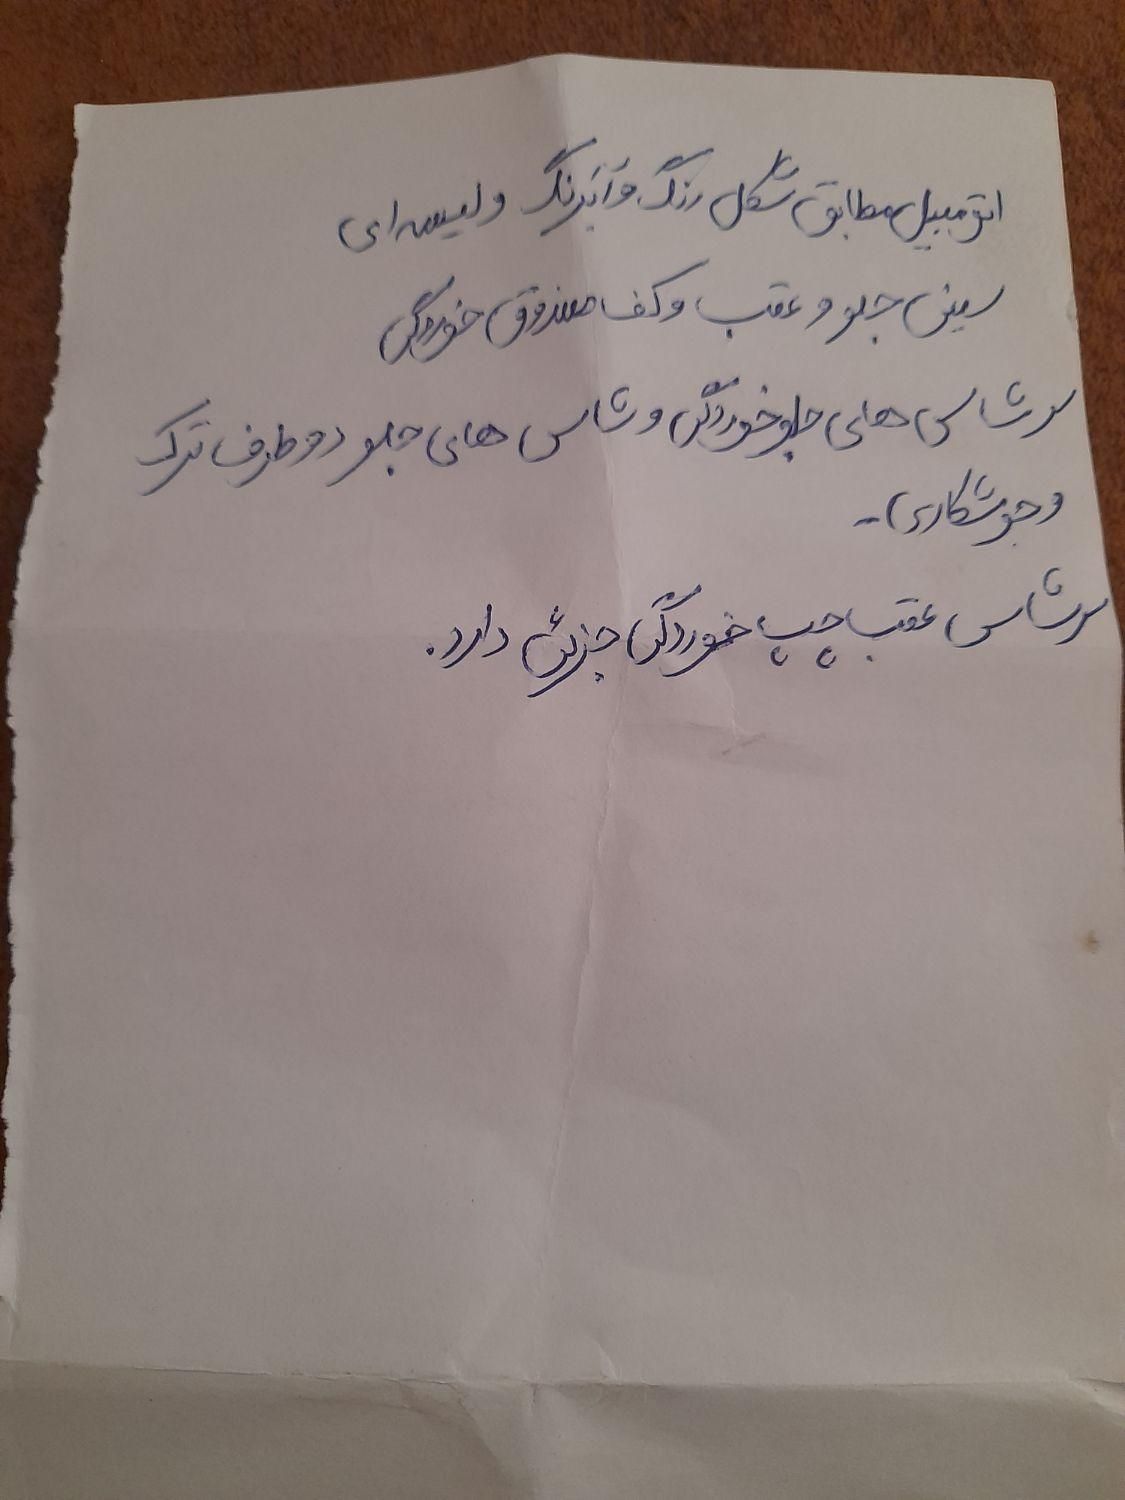 اتومبیل مطابق شکل رنگ و آبرنگ و لیسه ای
سینی جلو و عقب و کف صندوق خوردگی
سرشاسی های جلو خوردگی و شاسی های جلو دو طرف ترک
و جوشکاری -
سرشاسی عقب چپ خوردگی جزئی دارد.